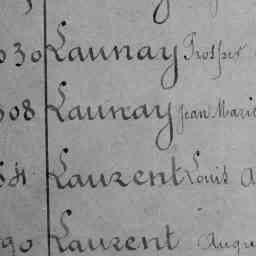 030 Launay Prosper
508 Launay Jean Marie
Laurent Louis A
90 Laurent Augu